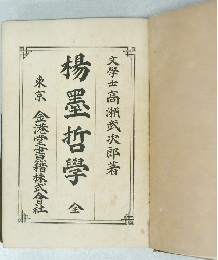 文學士 高瀨武次郎著
楊墨哲學 全
東京 金港堂書籍株式會社